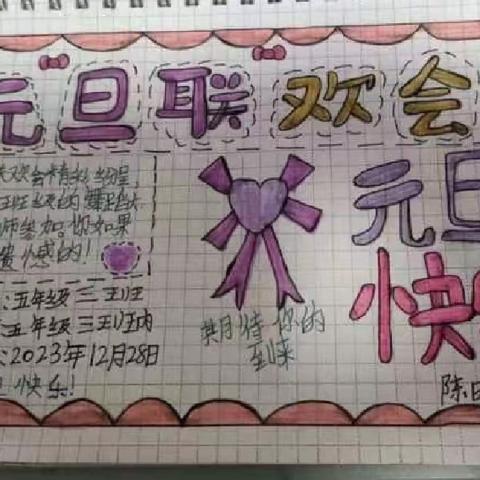 元旦联欢会
欢会精彩
班级的
师参加,你如果
遗憾的!
:五年级三班
:五年级三班内
:2023年12月28日
快乐!
期待你的
到来
元旦
快
陈